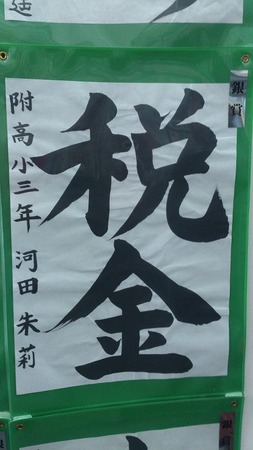 税金
附高小三年 河田 朱莉
銀賞
銀賞